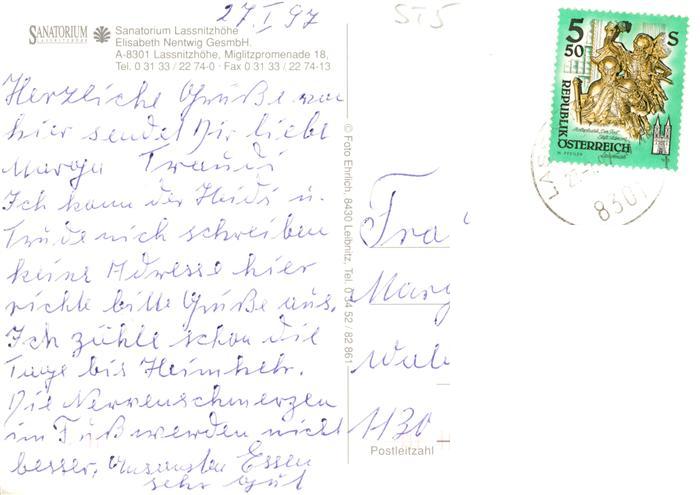 27.I 97
ST5
SANATORIUM
LASSNITZHÖHE
Sanatorium Lassnitzhöhe
Elisabeth Nentwig GesmbH.
A-8301 Lassnitzhöhe, Miglitzpromenade 18,
Tel. 0 31 33 / 22 74-0 · Fax 0 31 33 / 22 74-13
Herzliche Grüße von
hier sendet Dir liebe
Marga Traudi
Ich kann der Heidi u.
Trude nich schreiben
keine Adresse hier
richte bitte Grüße aus.
Ich zühle schon die
Tage bis Heimkehr.
Die Nervenschmerzen
im Fuß werden nicht
besser, Ansonsten Essen
sehr gut
© Foto Ehrlich, 8430 Leibnitz, Tel. 0 34 52 / 82 861
Fra
Marg
Wal
1130
Postleitzahl
5 50 S
REPUBLIK
ÖSTERREICH
8301